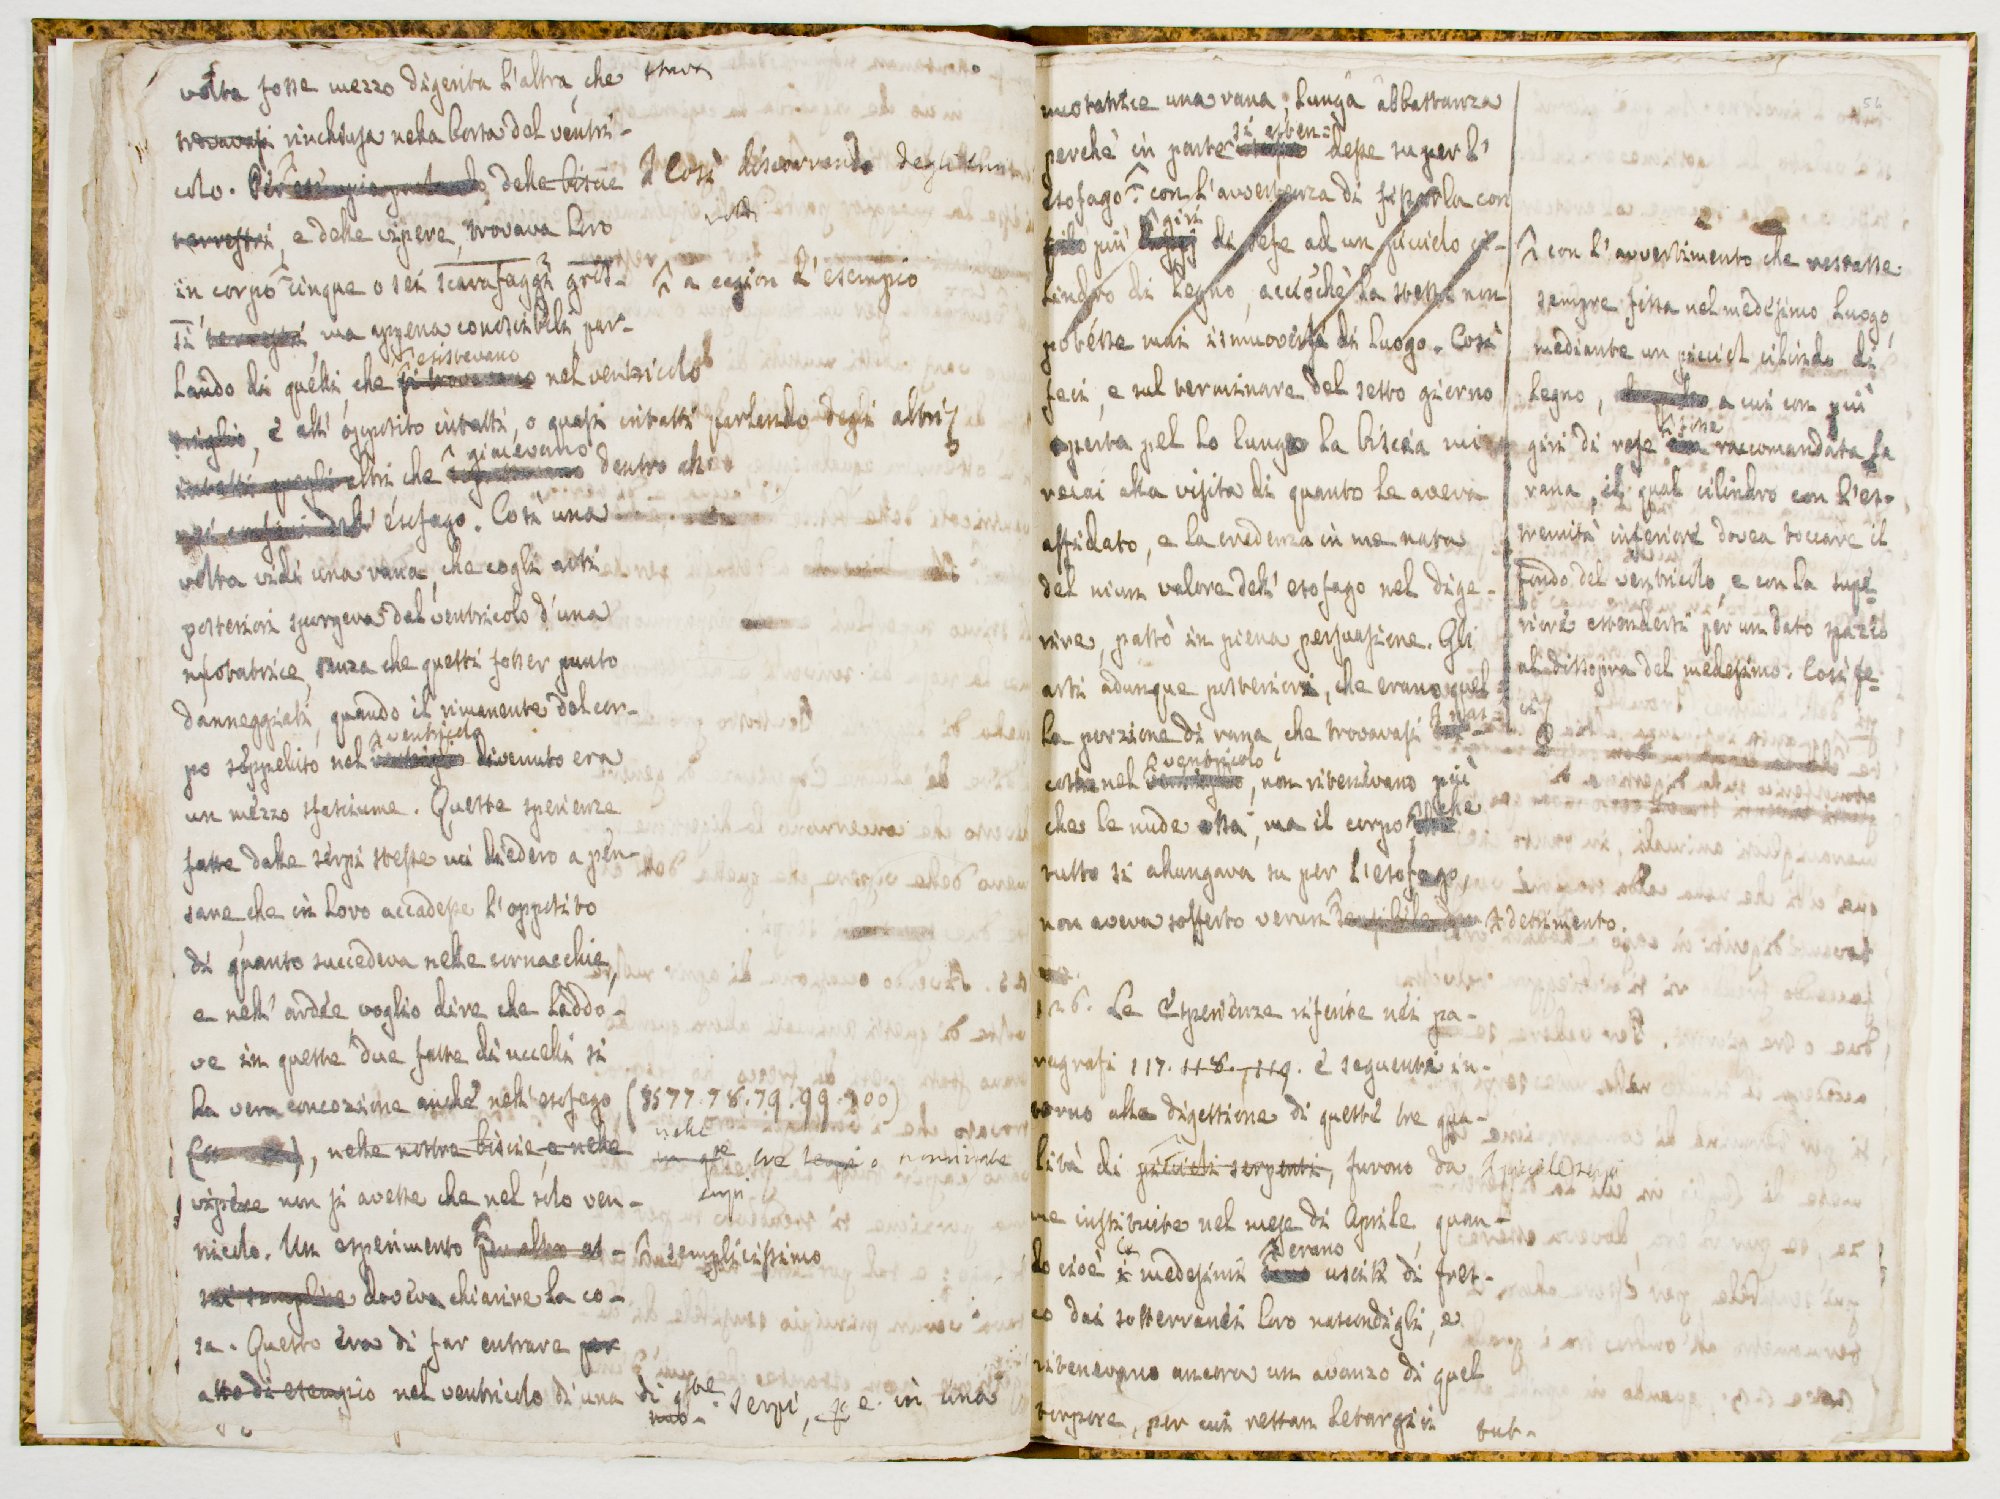 volta fosse mezzo digerita l'altra, che stava
trovavasi rinchiusa nella borsa del ventri-
colo. delle biscie Così discorrendo degli
terrestri, e delle vipere, trovava loro
in corpo cinque o sei scarafaggi gril- a cagion d'esempio
li terrestri, ma appena conoscibili par-
lando di quelli, che esistevano nel ventricolo
e all'opposito intatti, o quasi intatti parlando degli altri
altri che giacevano dentro all'
esofago. Così una
volta vidi una rana, che cogli arti
posteriori sporgeva dal ventricolo d'una
nuotatrice, senza che questi fosser punto
danneggiati, quando il rimanente del cor-
po seppellito nel ventricolo divenuto era
un mezzo sfasciume. Queste sperienze
fatte dalle serpi stesse mi diedero a pen-
sare, che in loro accadesse l'opposito
di quanto succedeva nelle cornacchie,
e nell'ardée voglio dire che laddo-
ve in queste due fatte di uccelli si
ha vera concozione anche nell'esofago (§§ 77.78.79.99.100)
nelle nostre biscie, e nelle nelle tre nominate
vipere non si avesse che nel solo ven- serpi
tricolo. Un esperimento semplicissimo
doveva chiarire la co-
sa. Questo era di far entrare per
atto di esempio nel ventricolo di una di serpi, e in una
nuotatrice una rana, lunga abbastanza
perchè in parte si esten-desse su per l'
esofago con l'avvertenza di fissarla con
più giri di refe ad un piccielo ci-
lindro di legno, acciòchè la stessa non
potesse mai ismuoversi di luogo. Così
feci, e sul terminare del sesto giorno
aperta pel lo lungo la biscia mi
recai alla visita di quanto le aveva
affidato, e la credenza in me nata
del niun valore dell'esofago nel dige-
rire, passò in piena persuasione. Gli
arti adunque posteriori, che erano quel-
la porzione di rana, che trovavasi
nel ventricolo, non ritenevano più
che le nude ossa, ma il corpo, che
tutto si allungava su per l'esofago,
non aveva sofferto verun detrimento.
con l'avvertimento che restasse
sempre fissa nel medesimo luogo,
mediante un picciol cilindro di
legno, a cui con più
giri di refe fosse raccomandata la
rana, il qual cilindro con l'es-
tremità inferiore dovea toccare il
fondo del ventricolo, e con la supe-
riore estendersi per un dato spazio
al dissopra del medesimo. Così fe-
ci
126. Le Esperienze riferite nei pa-
ragrafi 117. 118. 119. e seguenti in-
torno alla digestione di queste tre qua-
lità di piccioli serpenti, furono da
me instituite nel mese di Aprile, quan-
do cioè i medesimi erano usciti di fres-
co dai sotterranei loro nascondigli, e
ritenevano ancora un avanzo di quel
torpore, per cui restan letargici tut-